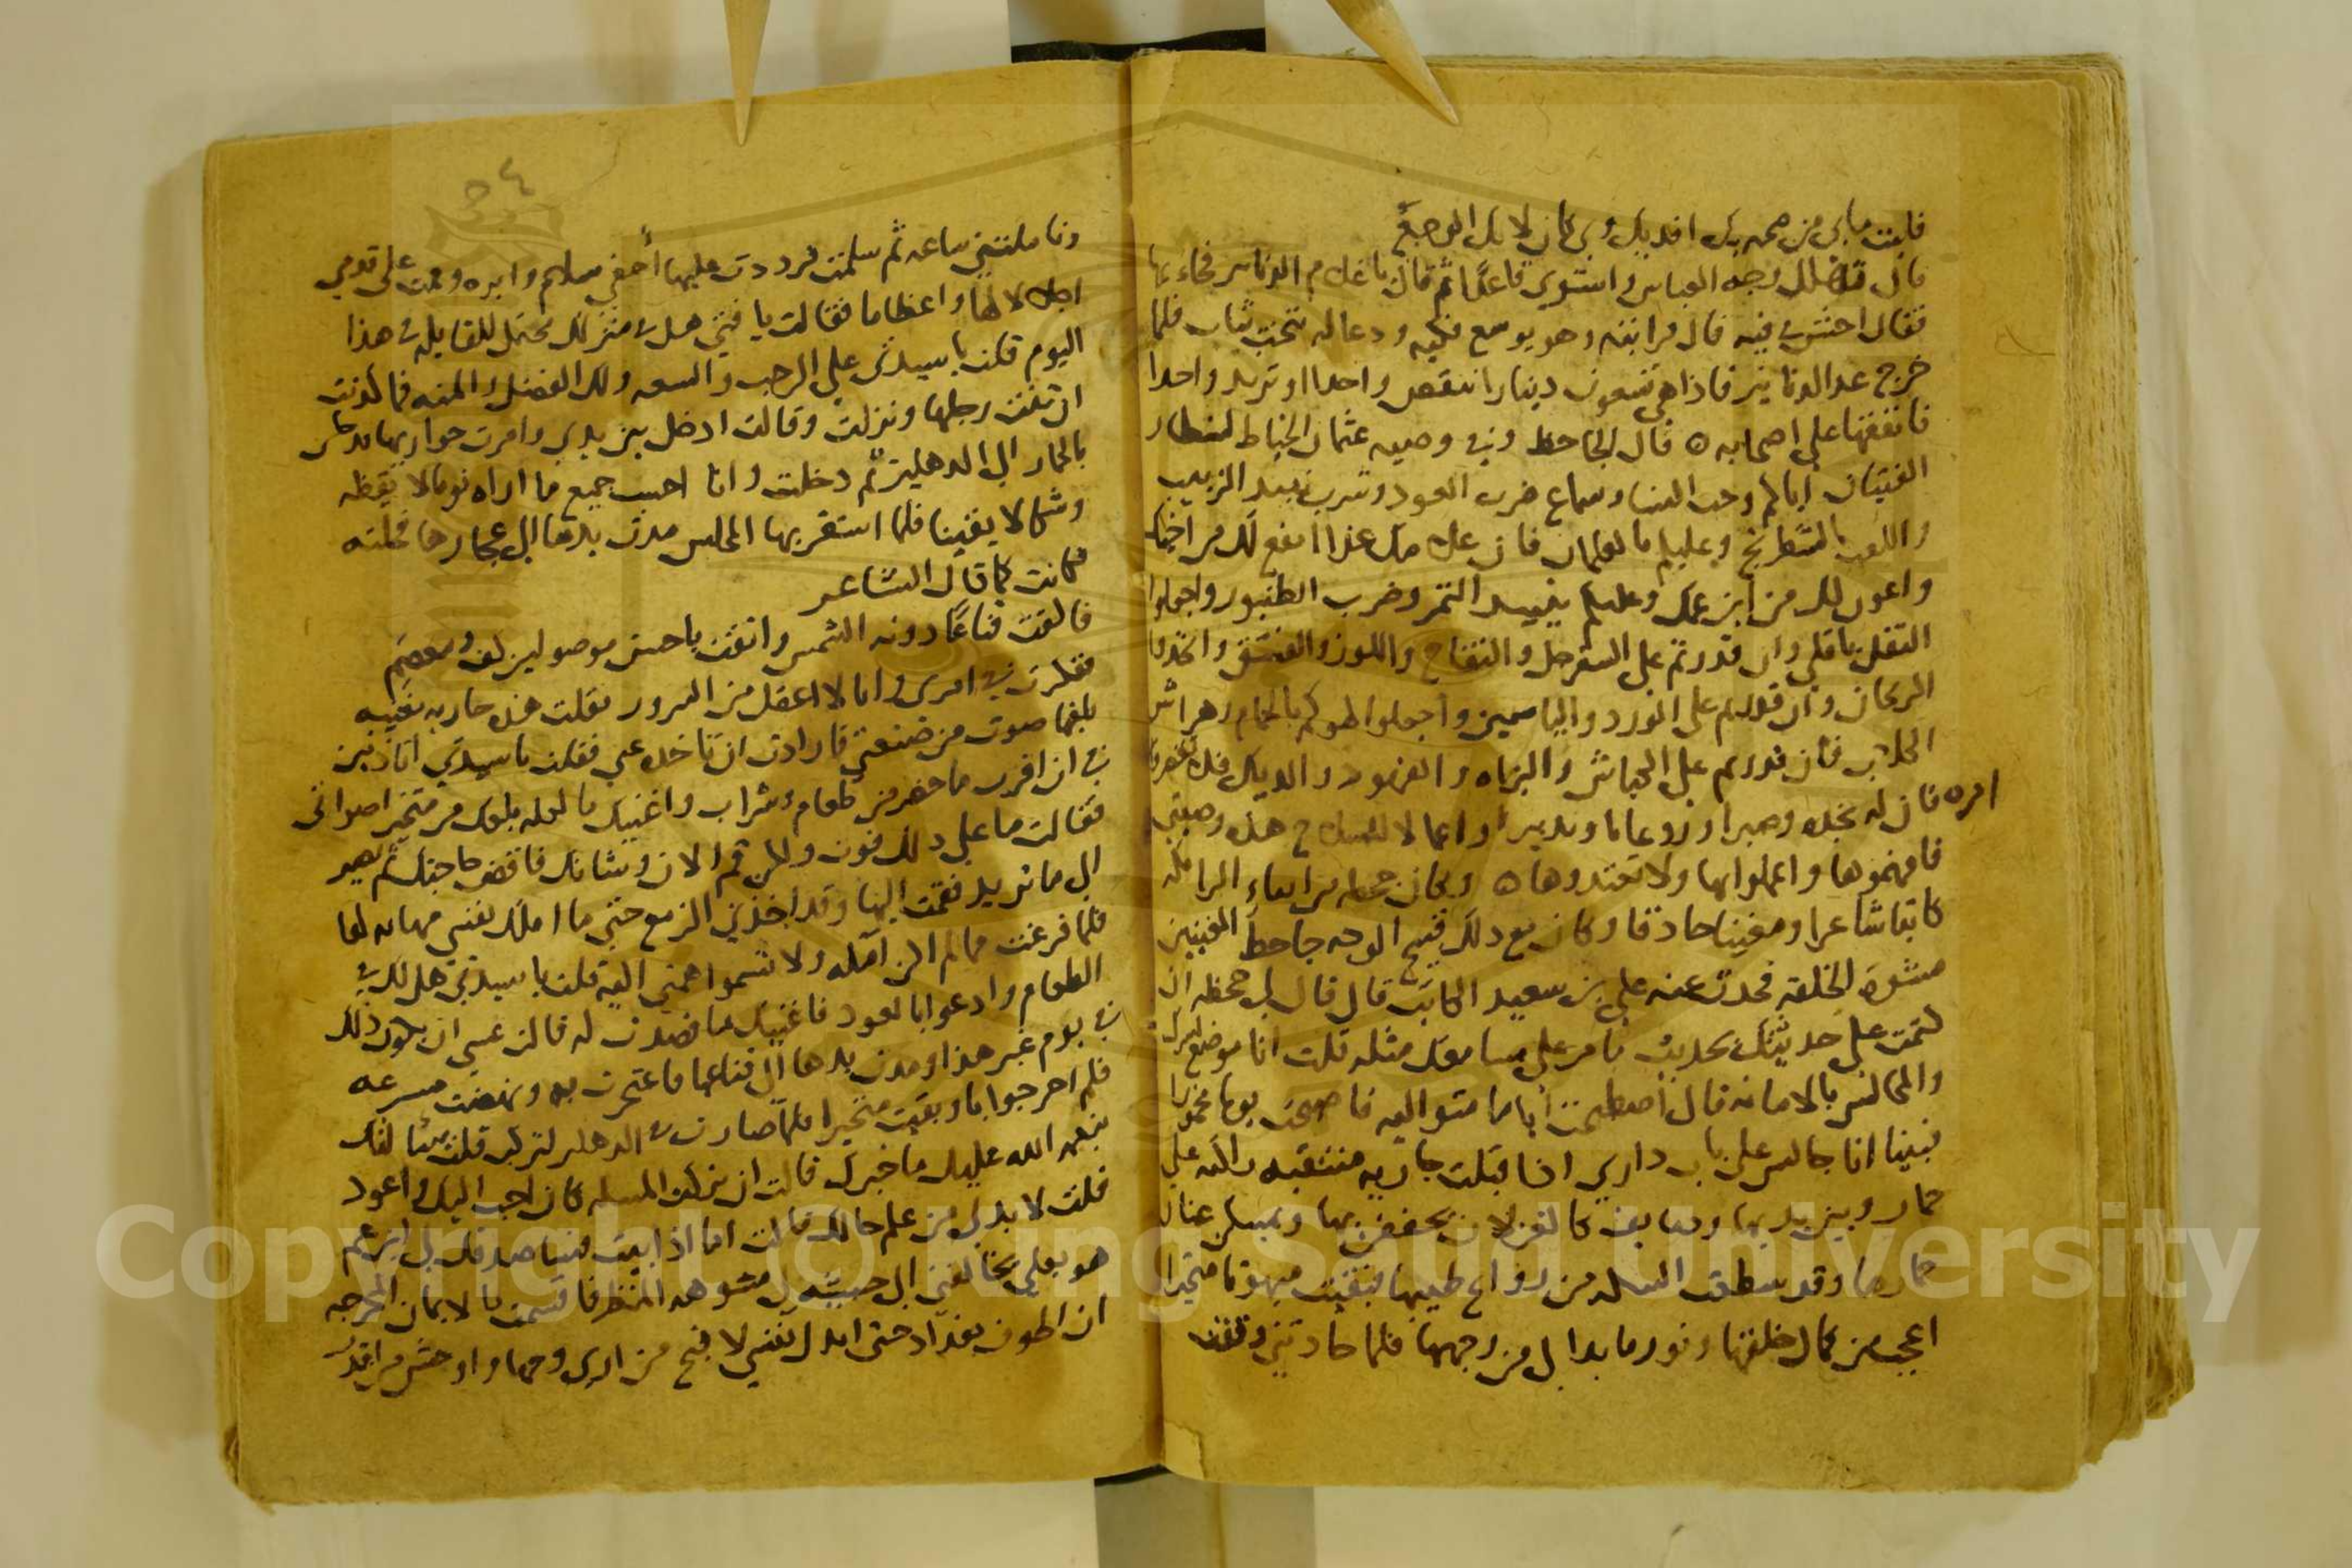 فليت ما بى من حمه بك افديك وبى كان لا بك الوجع
قال فتهلل وجه العباس واستوى قاعدا ثم قال يا غلام الدنانير فجاء بها
فقال احش فيه قال فرايته وهو يوسع فكيه ودعا له بتخت ثياب فلما
خرج عد الدنانير فاذا هى تسعون دينارا تنقص واحدا او تزيد واحدا
فانفقها على اصحابه قال الجاحظ وفى وصيه عثمان الخياط للشطار
الفتيان اياكم وحب النساء وسماع ضرب العود وشرب نبيد الزبيب
واللعب بالشطرنج وعليكم بالغلمان فان غلامك هذا انفع لك من اخيك
واعون لك من ابن عمك وعليكم بنبيد التمر وضرب الطنبور واجعلوا
النقل باقلى وان قدرتم على السفرجل والتفاح واللوز والفستق واتخدوا
الريحان وان قدرتم على الورد والياسمين واجعلوا لهوكم بالحمام وهراش
الكلاب فان قدرتم على الكباش والبزاه والفهود والديك فلا تقربوه
امره فان له نجده وصبرا وروعانا وتدبيرا واعمالا للسلاح هذه وصيتى
فافهموها واعملوا بها ولا تعتدوها وكان جحظه من ابناء البرامكه
كاتبا شاعرا ومغنيا حادقا وكان مع دلك قبيح الوجه جاحظ العينين
مشوه الخلقه فحدث عنه على بن سعيد الكاتب قال قال لى جحظه ان
كتمت على حديثتك بحديث ما مر على مسامعك مثله قلت انا موضع لسرك
والمجالس بالامانه قال اصطبحت اياما متواليه فاصبحت يوما مخمورا
فبينا انا جالس على باب دارى اذ اقبلت جاريه منتقبه راكبه على
حمار وبين يديها وصايف كالغزلان يحففن بها ويمسكن عنان
حمارها وقد سطعت السكه من روايح طيبها فبقيت مبهوتا متحيرا
اعجب من كمال خلقها ونور ما بدا لى من وجهها فلما حادتنى وقفت
٥٤
وتاملتنى ساعه ثم سلمت فرددت عليها احفى سلام وابره وقمت على قدمى
اجلالا لها واعظاما فقالت يا فتى هل فى منزلك محتمل للقايله فى هذا
اليوم قلت يا سيدتى على الرحب والسعه ولك الفضل والمنه فما كدبت
ان ثنت رجلها ونزلت وقالت ادخل بين يدى وامرت جواريها تدخل
بالحمار الى الدهليز ثم دخلت وانا احسب جميع ما اراه نوما لا يقظه
وشكا لا يقينا فلما استقر بها المجلس مدت يدها الى عجارها فحلته
فكانت كما قال الشاعر
فالقت قناعا دونه الشمس واتقت باحسن موصولين كف ومعصم
ففكرت فى امرى وانا لا اعقل من السرور فقلت هذه جاريه مغنيه
بلغها صوت من صنعتى فارادت ان تاخده عنى فقلت يا سيدتى اتادنين
فى ان اقرب ما حضر من طعام وشراب واغنيك ما لعله بلغك من متخير اصواتى
فقالت ما على دلك فوت ولكن قم الان وشانك فاقض حاجتك ثم نصير
الى ما تريد فقمت اليها وقد اخدنى الزمع حتى ما املك نفسى مهابه لها
فلما فرغت مما لم اكن امله ولا تسموا همتى اليه قلت يا سيدتى هل لك فى
الطعام وادعوا بالعود فاغنيك ما قصدت له قالت عسى ان يكون ذلك
فى يوم غير هذا ومدت يدها الى قناعها فاعتجرت به ونهضت مسرعه
فلم احر جوابا وبقيت متحيرا فلما صارت فى الدهليز لتركب قلت سالتك
بنعمه الله عليك ما خبرك قالت ان تركت المسله كان احب اليك واعود
فقلت لا بد لى من علم حالك قالت اما اذ ابيت فساصدقك لى ابن عم
هو بعلى يخالفنى الى صبيه لى مشوهه المنظر فاقسمت بالايمان المحرجه
ان اطوف بغداد حتى ابدل نفسى لاقبح من ارى وجها واوحش من اقدر